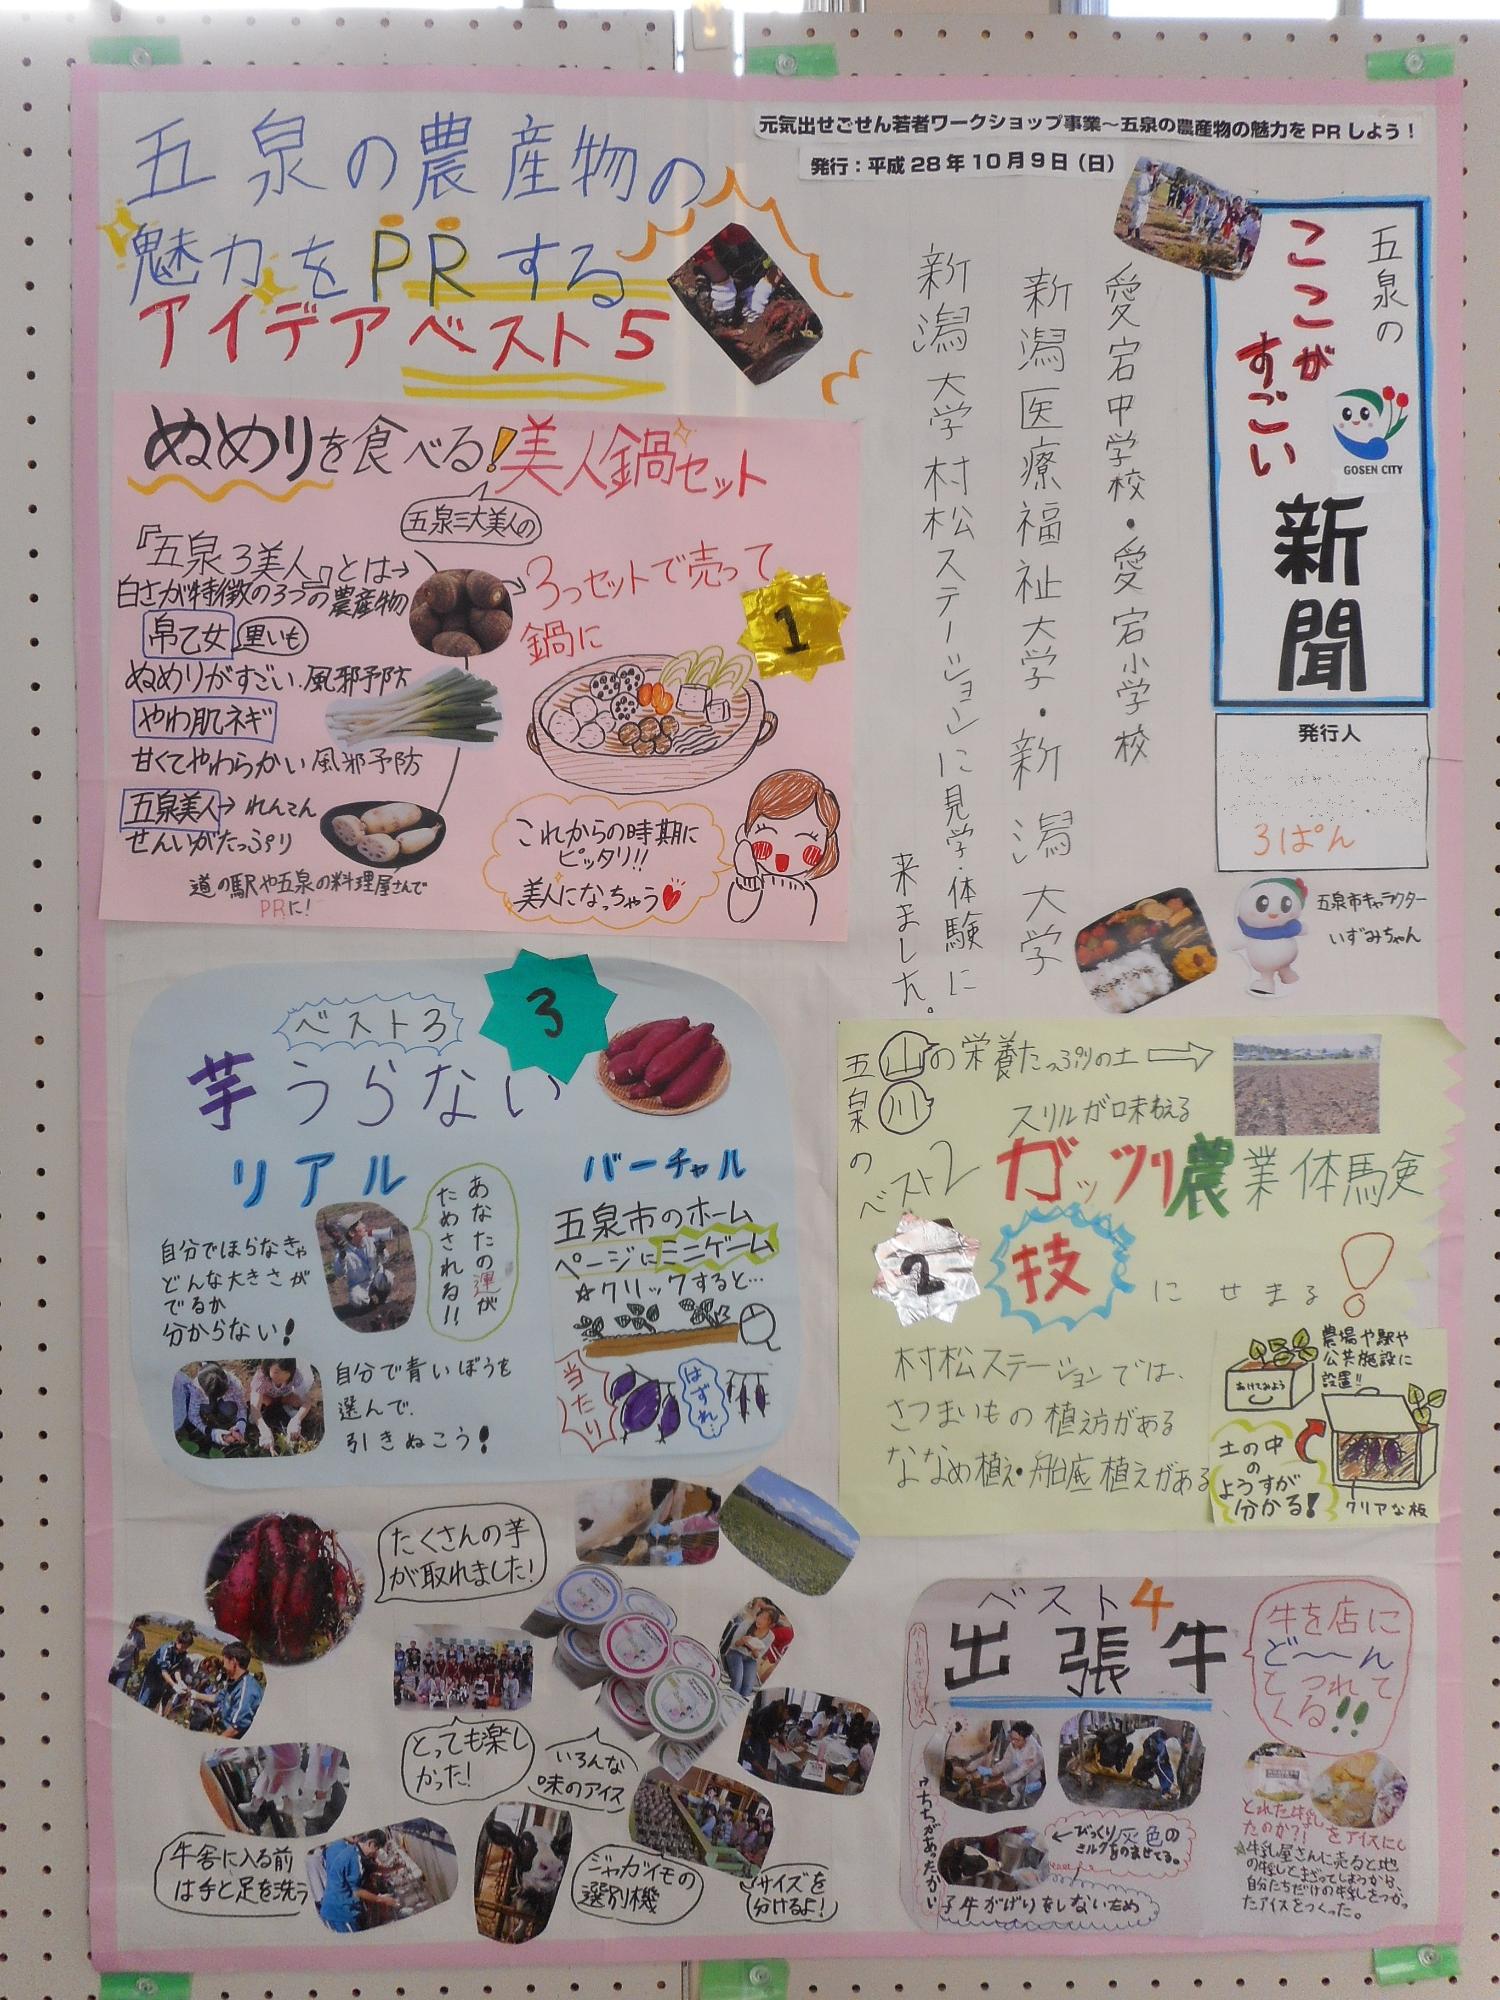 元気出せごせん若者ワークショップ事業～五泉の農産物の魅力をPRしよう！
発行：平成28年10月9日（日）
五泉の
ここが
すごい
新聞
GOSEN CITY
発行人
3ぱん
五泉市キャラクター
いずみちゃん
愛宕中学校・愛宕小学校
新潟医療福祉大学・新潟大学
新潟大学村松ステーションに見学・体験に
来ました。
五泉の農産物の
魅力をPRする
アイデアベスト5
ぬめりを食べる!美人鍋セット
五泉三大美人の
『五泉3美人』とは→
白さが特徴の3つの農産物
帛乙女 里いも
ぬめりがすごい.風邪予防
やわ肌ネギ
甘くてやわらかい風邪予防
五泉美人→れんこん
せんいがたっぷり
道の駅や五泉の料理屋さんで
PRに!
3つセットで売って
鍋に
1
これからの時期に
ピッタリ!!
美人になっちゃう
五泉の
山
川
の栄養たっぷりの土
スリルが味わえる
ベスト2
ガッツリ農業体験
2
技にせまる!
村松ステーションでは、
さつまいもの植え方がある
ななめ植え・船底植えがある
農場や駅や
公共施設に
設置!!
あけてみよう
土の中
の
ようすが
分かる!
クリアな板
ベスト3
3
芋うらない
リアル
あなたの運が
ためされる!!
自分でほらなきゃ
どんな大きさが
でるか
分からない!
自分で青いぼうを
選んで.
引きぬこう!
バーチャル
五泉市のホーム
ページにミニゲーム
☆クリックすると…
当たり
はずれ…
たくさんの芋
が取れました!
とっても楽し
かった!
いろんな
味のアイス
牛舎に入る前
は手と足を洗う
ジャガイモの
選別機
サイズを
分けるよ!
ベスト4
出張牛
牛を店に
ど～～ん
とつれて
くる!!
ウちちがあったかい
←びっくり灰色の
ミルクをのませてる。
子牛がげりをしないため
とれた牛乳をアイスにし
たのか?!
☆牛乳屋さんに売ると他
の牛乳とまざってしまうから、
自分たちだけの牛乳をつかっ
たアイスをつくった。